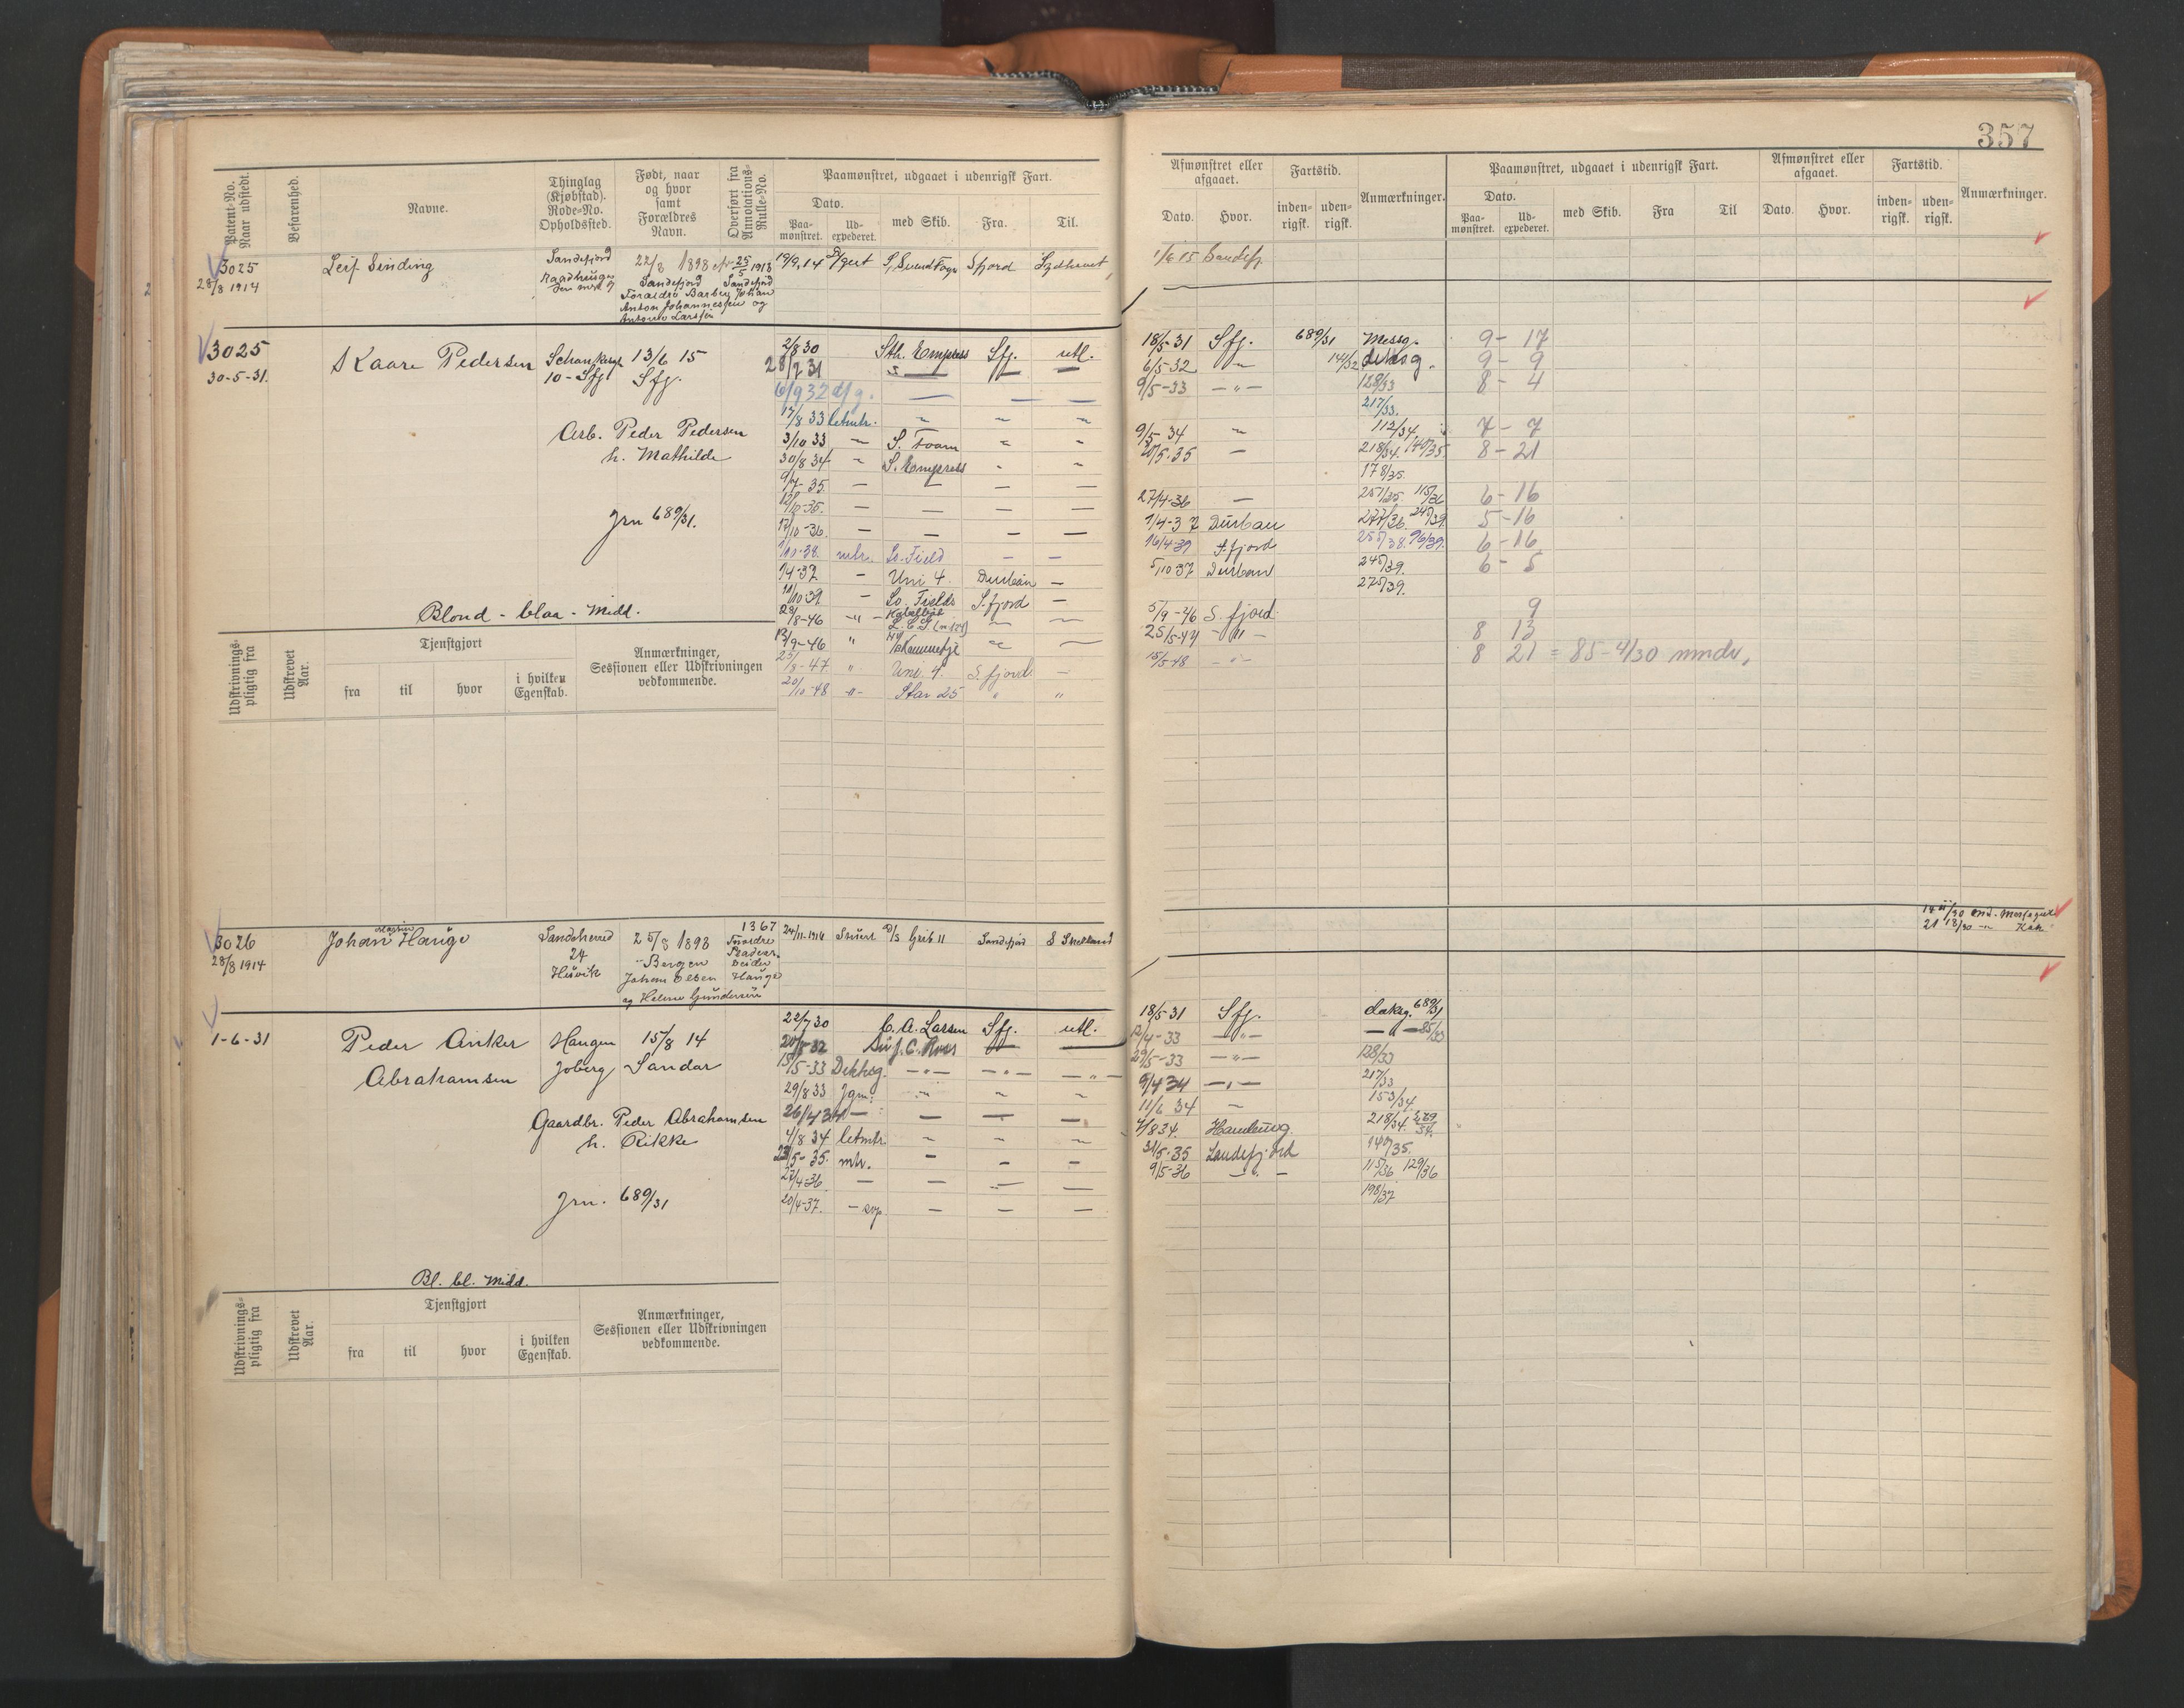 357
Patent-No. Naar udstedt.
Befarenhed.
Navne.
Thinglag (Kjøbstad). Rode-No. Opholdssted.
Født, naar og hvor samt Forældres Navn.
Overført fra Annotations-Rulle-No.
Paamønstret, udgaaet i udenrigsk Fart.
Dato.
Paa-mønstret.
Ud-expederet.
med Skib.
Fra.
Til.
Afmønstret eller afgaaet.
Dato.
Hvor.
Fartstid.
inden-rigsk.
uden-rigsk.
Anmærkninger.
Paamønstret, udgaaet i udenrigsk Fart.
Dato.
Paa-mønstret.
Ud-expederet.
med Skib.
Fra
Til
Afmønstret eller afgaaet.
Dato.
Hvor.
Fartstid.
inden-rigsk.
uden-rigsk.
Anmærkninger.
3025
28/8 1914
Leif Sinding
Sandefjord
22/8 1898
25/5 1918
Sandefjord Sandefjord
Forældre Barber Johan
Anton Johannessen og
Larssen
19/9 14
Sfjord
1/6 15 Sandefj
3025
30-5-31.
Kaare Pedersen
10 - Sfj
13/6 15
Sfj.
Arb. Peder Pedersen
h. Mathilde
Jrn 689/31.
Blond - blaa - Midd.
2/8 30 Sth. Empress Sfj. utl.
28/7 31 — — —
6/9 32 — — —
17/8 33 Letmtr. ~ ~ ~
3/10 33 ~ S. Foam ~ ~
30/8 34 ~ S. Empress - ~
9/7-35 — — — —
12/10-35. — — — —
17/10-36. — — — —
1/10-38. mtr. So. Field — —
14-37 — Uni 4. Durban —
11/10 39 — So. Fields S.fjord —
29/8-46 -"- Kobbelbåt
13/9-46 "
25/8-47 " Uni. 4. S.fjord. —
20/10-48 -"- Star 25 " "
18/5-31 Sfj. 689/31 Messg. 9 - 17
6/5-32 ~ 141/32 deksg. 9 - 9
9/5-33 — " — 128/33 8 - 4
217/33.
9/5-34 ~ 112/34 7 - 7
27/5.35 — 218/34. 140/35. 8 - 21
178/35.
27/4-36 — 251/35 115/36 6 - 16
1/4-37 Durban 277/36. 240/39. 5 - 16
16/4-39 S.fjord 255/38. 96/39. 6 - 16
5/10 37 Durban 245/39. 6 - 5
275/39.
5/9-46 S.fjord. 9
25/5-47 - " - 8 13
15/5-48 - " - 8 21 = 85 - 4/30 mndr,
Udskrivnings-pligtig fra
Udskrevet Aar.
Tjenstgjort
fra
til
hvor
i hvilken Egenskab.
Anmærkninger, Sessionen eller Udskrivningen vedkommende.
3026
28/8 1914
Johan Martin Hauge
Sandeherred
24
Husvik
25/8 1898
Bergen
Johan Olsen Hauge
og Helene Gundersen
1367
24/11-1914 Grib II Sandefjord S Shetland
1-6-31
Peder Anker
Abrahamsen
Haugen
Joberg
15/8 14
Sandar
Gaardbr. Peder Abrahamsen
h. Rikke
Jrn. 689/31
Bl. bl. Midd.
22/7 30 C. A. Larsen Sfj. utl.
20/8-32 Sir J. C. Ross — —
15/5-33 Dekksg. — " — — " — — " —
29/8 33 Jgm: ~ ~ ~
26/4 34 — — — —
4/8 34 Letmtr. ~ ~ ~
23/5-35. mtr. — — —
27/4-36 — — — —
20/4-37. — — — —
18/5-31 Sfj. deksg. 689/31
12/4-33 — " — — " — 85/33
29/5-33 — " — 128/33
9/4 34 — " — 217/33
11/6 34 ~ 153/34.
4/8 34. Hamburg. 218/34.
31/5-35 Sandefjord 140/35.
9/5-36 — " — 115/36 129/36
198/37.
Udskrivnings-pligtig fra
Udskrevet Aar.
Tjenstgjort
fra
til
hvor
i hvilken Egenskab.
Anmærkninger, Sessionen eller Udskrivningen vedkommende.